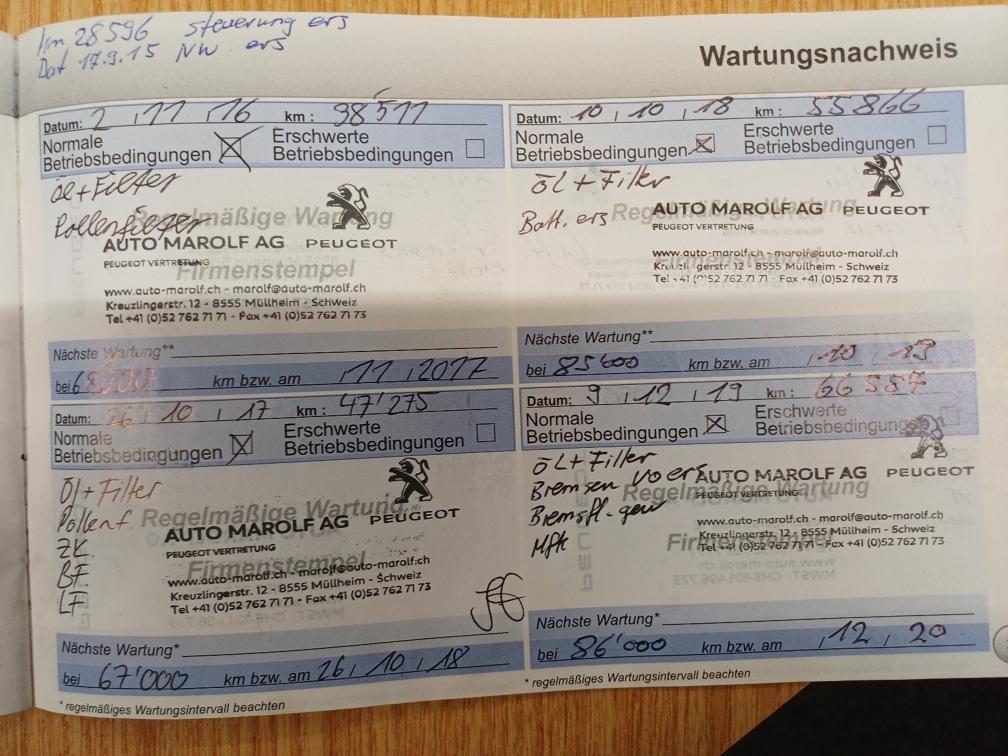 km 28596 steuerung ers
Dat 17.9.15 NW ers
Wartungsnachweis
Datum: 2, 11, 16 km: 38'511
Normale Betriebsbedingungen
Erschwerte Betriebsbedingungen
Öl + Filter
Pollenfilter
Regelmäßige Wartung
AUTO MAROLF AG PEUGEOT
PEUGEOT VERTRETUNG
Firmenstempel
www.auto-marolf.ch - marolf@auto-marolf.ch
Kreuzlingerstr. 12 - 8555 Müllheim - Schweiz
Tel +41 (0)52 762 71 71 - Fax +41 (0)52 762 71 73
Nächste Wartung**
bei km bzw. am 11, 2017
Datum: 26, 10, 17 km: 47'275
Normale Betriebsbedingungen
Erschwerte Betriebsbedingungen
Öl + Filter
Pollenf.
ZK.
BF.
LF
Regelmäßige Wartung
AUTO MAROLF AG PEUGEOT
PEUGEOT VERTRETUNG
Firmenstempel
www.auto-marolf.ch - marolf@auto-marolf.ch
Kreuzlingerstr. 12 - 8555 Müllheim - Schweiz
Tel +41 (0)52 762 71 71 - Fax +41 (0)52 762 71 73
Nächste Wartung*
bei 67'000 km bzw. am 26, 10, 18
* regelmäßiges Wartungsintervall beachten
Datum: 10, 10, 18 km: 55866
Normale Betriebsbedingungen
Erschwerte Betriebsbedingungen
ÖL + Filter
Batt. ers
Regelmäßige Wartung
AUTO MAROLF AG PEUGEOT
PEUGEOT VERTRETUNG
www.auto-marolf.ch - marolf@auto-marolf.ch
Kreuzlingerstr. 12 - 8555 Müllheim - Schweiz
Tel +41 (0)52 762 71 71 - Fax +41 (0)52 762 71 73
Nächste Wartung**
bei 85'000 km bzw. am , 10, 19
Datum: 9, 12, 19 km: 66587
Normale Betriebsbedingungen
Erschwerte Betriebsbedingungen
ÖL + Filter
Bremsen vo ers
Bremsfl. gew
MFK
Regelmäßige Wartung
AUTO MAROLF AG PEUGEOT
PEUGEOT VERTRETUNG
www.auto-marolf.ch - marolf@auto-marolf.ch
Kreuzlingerstr. 12 - 8555 Müllheim - Schweiz
Tel +41 (0)52 762 71 71 - Fax +41 (0)52 762 71 73
Nächste Wartung*
bei 86'000 km bzw. am , 12, 20
* regelmäßiges Wartungsintervall beachten